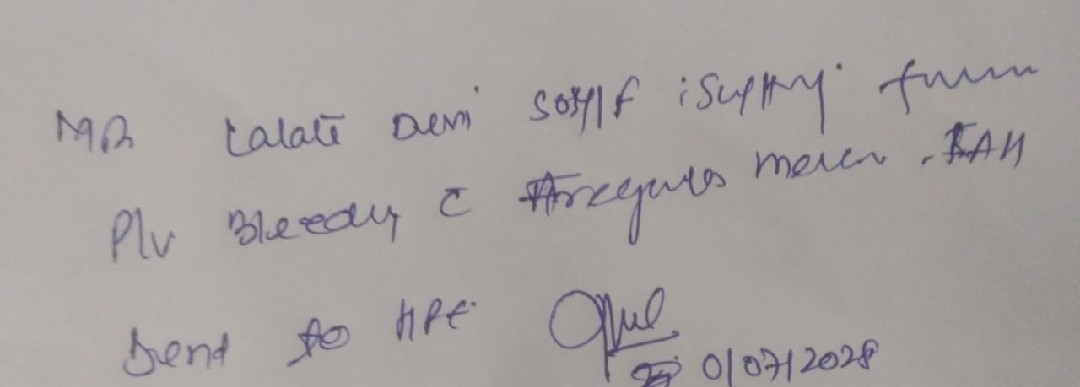 MR Lalati Devi 50y/F is suffering from
P/v Bleeding c Irregular menses. TAH
Send to HPE
01/07/2028